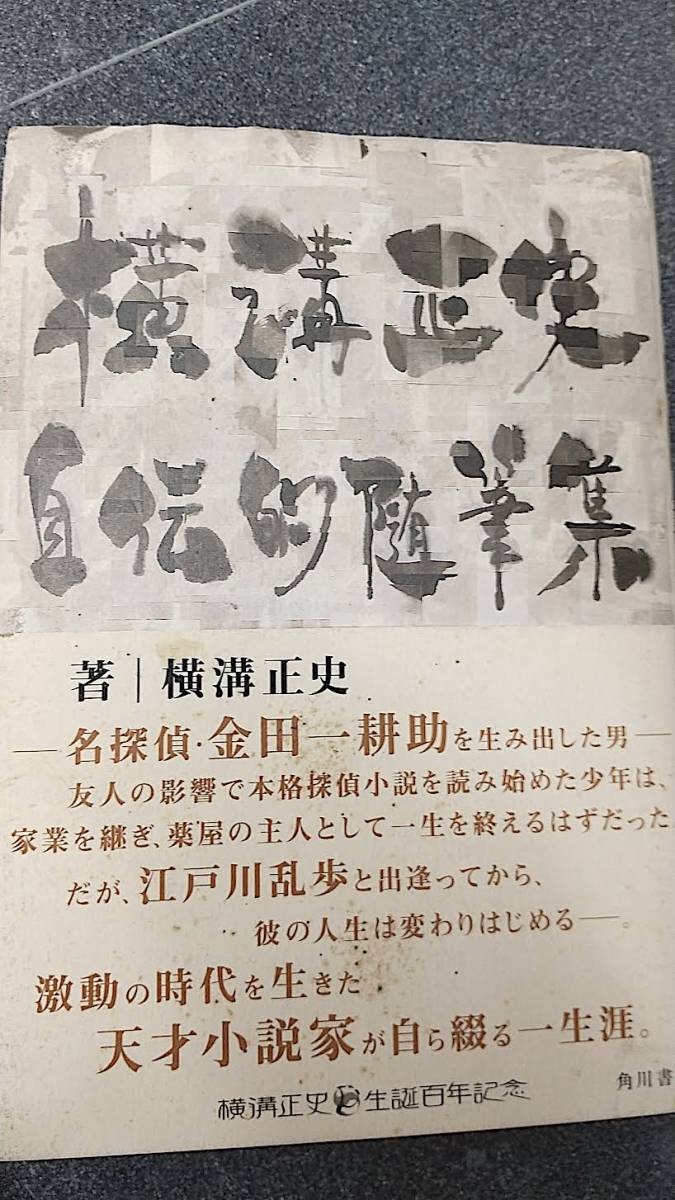 横溝正史
自伝的随筆集
著｜横溝正史
―名探偵・金田一耕助を生み出した男―
友人の影響で本格探偵小説を読み始めた少年は、
家業を継ぎ、薬屋の主人として一生を終えるはずだった
だが、江戸川乱歩と出逢ってから、
彼の人生は変わりはじめる―。
激動の時代を生きた
天才小説家が自ら綴る一生涯。
横溝正史生誕百年記念
角川書